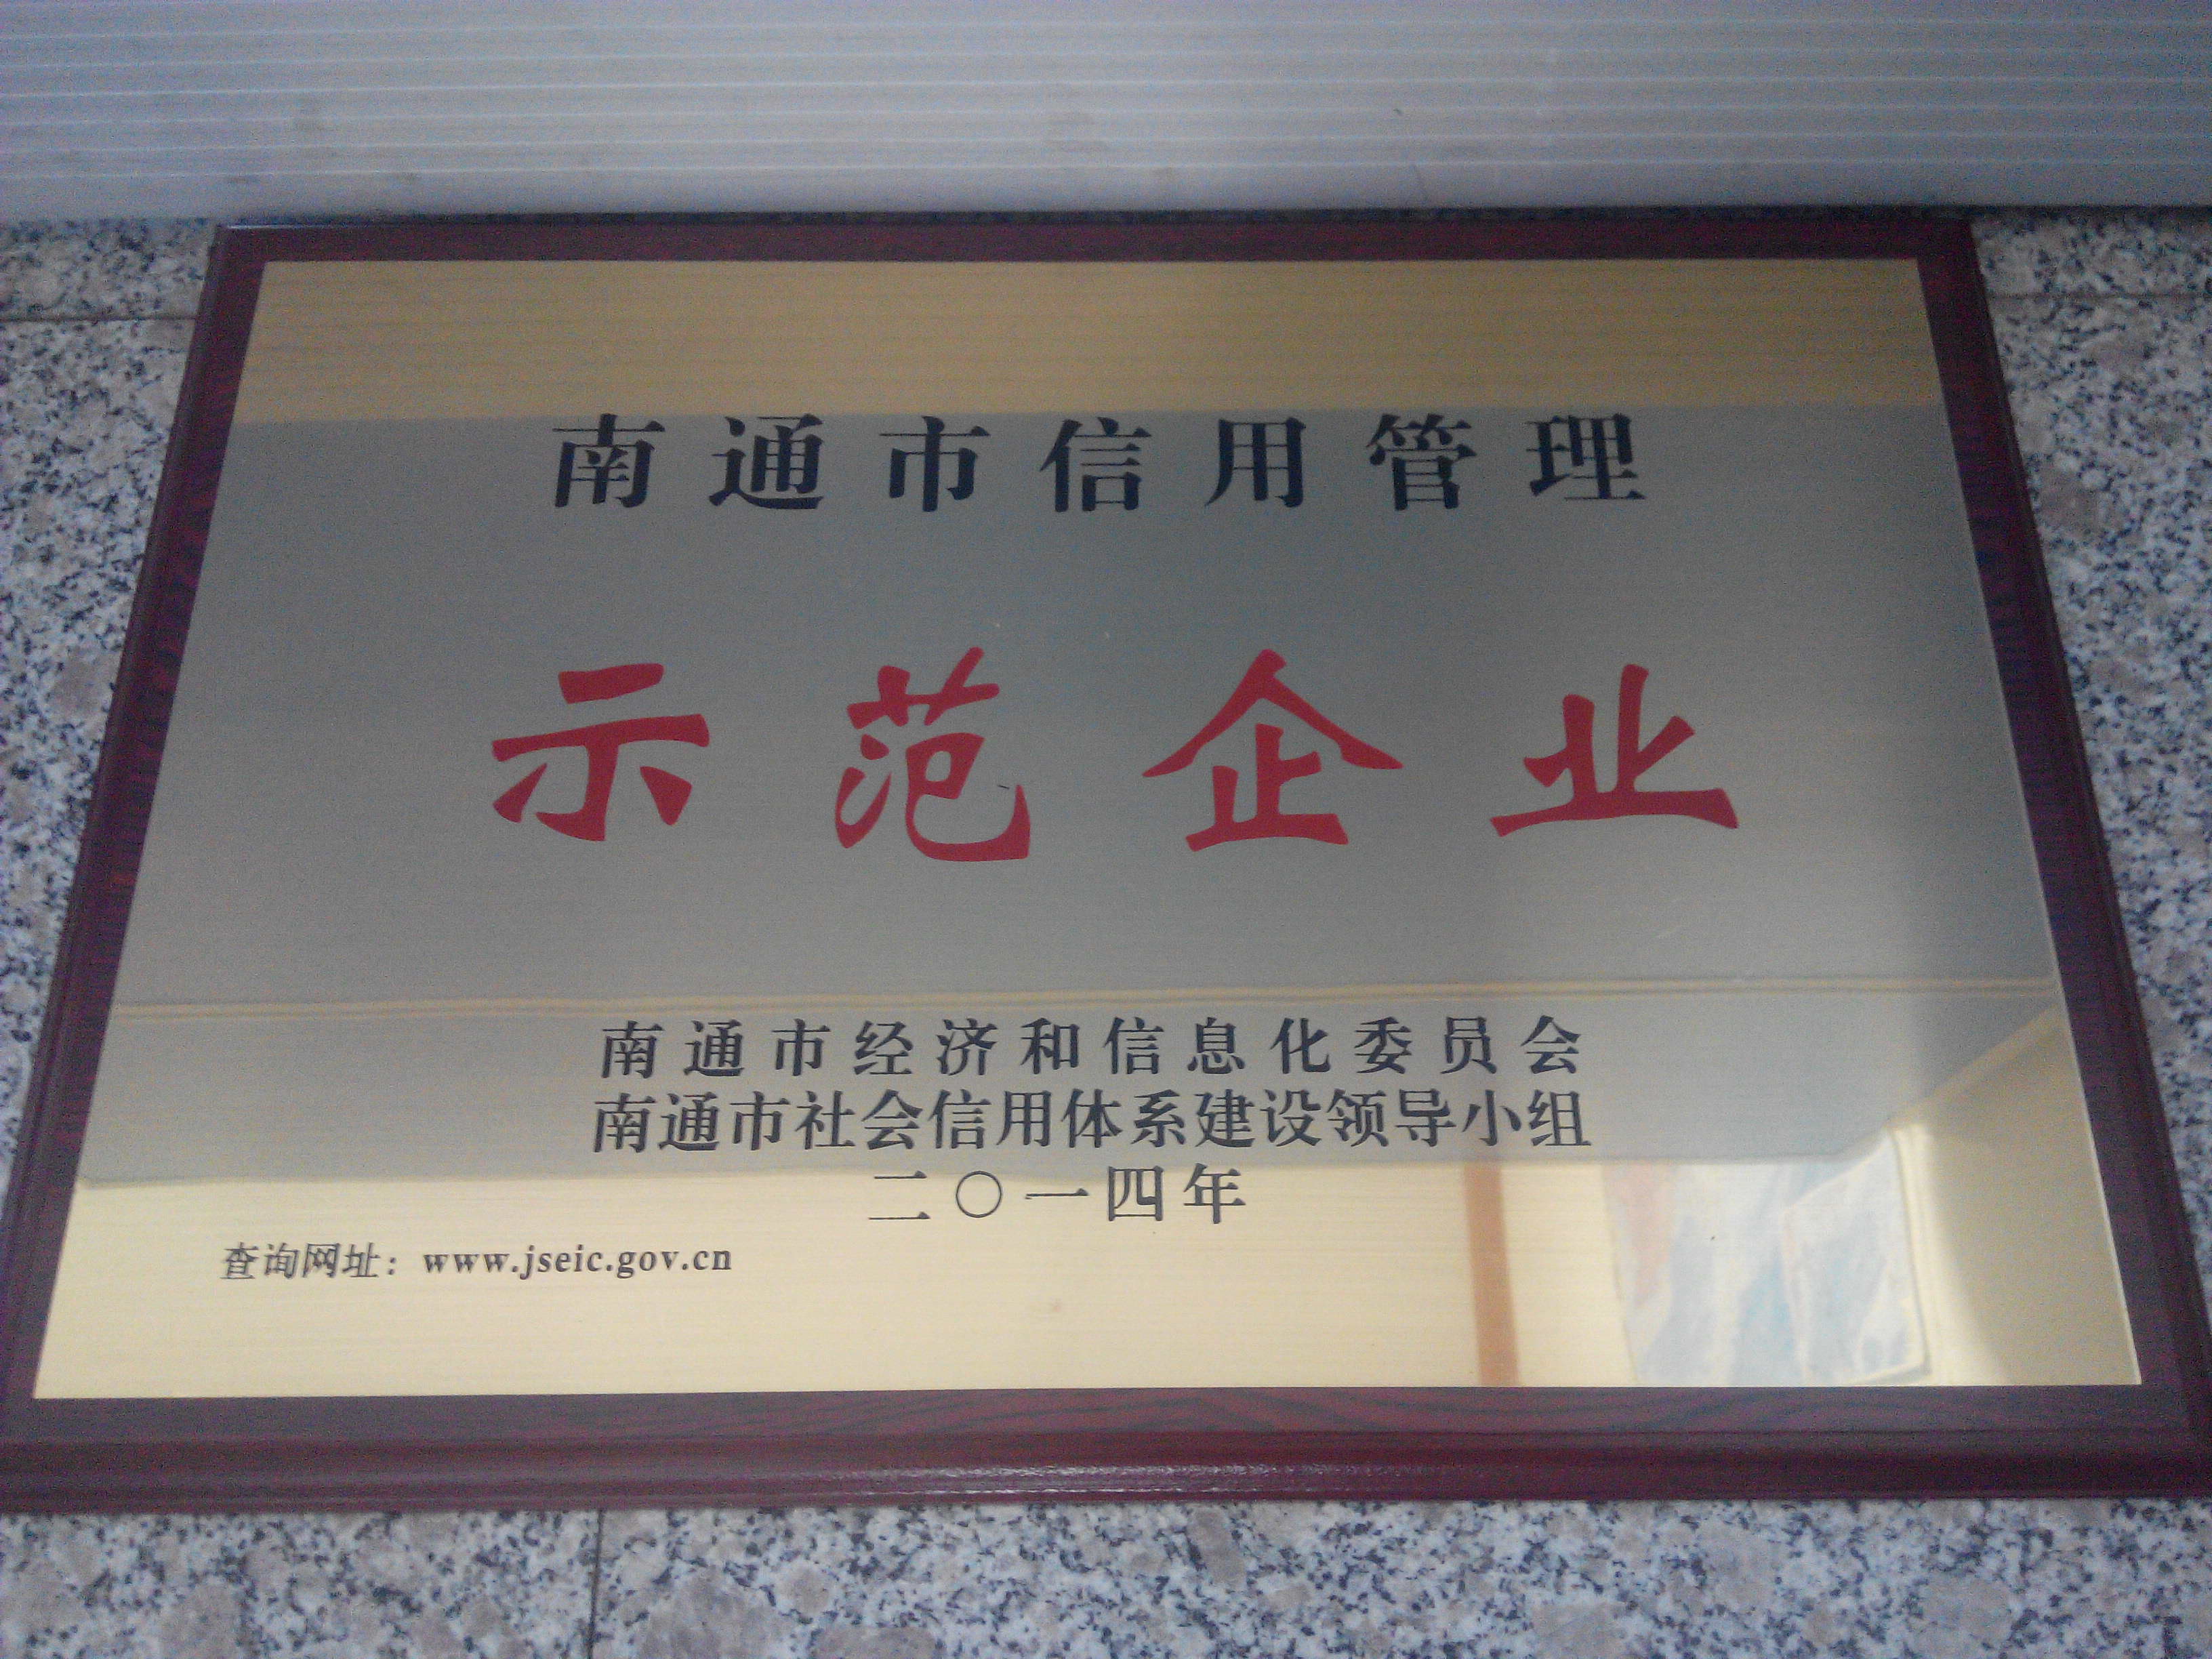 南通市信用管理
示范企业
南通市经济和信息化委员会
南通市社会信用体系建设领导小组
二〇一四年
查询网址：www.jseic.gov.cn